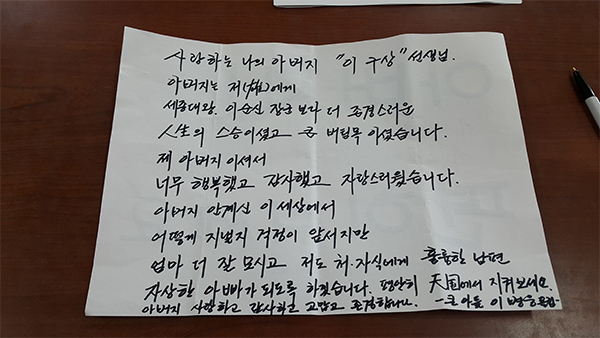 사랑하는 나의 아버지 "이 구상" 선생님.
아버지는 저(雄)에게
세종대왕. 이순신 장군 보다 더 존경스러운
人生의 스승이셨고 큰 버팀목 이셨습니다.
제 아버지 이셔서
너무 행복했고 감사했고 자랑스러웠습니다.
아버지 안계신 이 세상에서
어떻게 지낼지 걱정이 앞서지만
엄마 더 잘 모시고 저도 처·자식에게 훌륭한 남편
자상한 아빠가 되도록 하겠습니다. 평안히 天国에서 지켜보세요.
아버지 사랑하고 감사하고 고맙고 존경합니다. -큰 아들 이